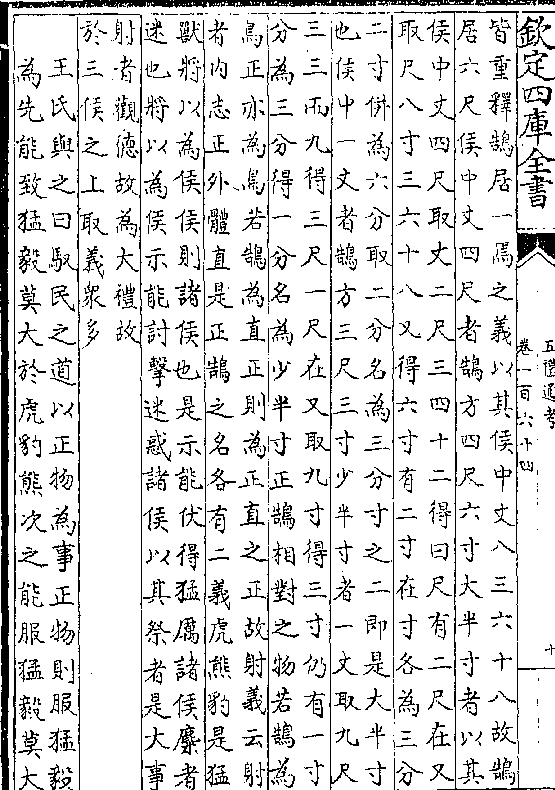 欽定四庫全書
五禮通考
卷一百六十四
十
皆重釋鵠居一焉之義以其侯中丈八三六十八故鵠
居六尺侯中丈四尺者鵠方四尺六寸大半寸者以其
侯中丈四尺取丈二尺三四十二得曰尺有二尺在又
取尺八寸三六十八又得六寸有二寸在寸各為三分
二寸併為六分取二分名為三分寸之二即是大半寸
也侯中一丈者鵠方三尺三寸少半寸者一丈取九尺
三三而九得三尺一尺在又取九寸得三寸仍有一寸
分為三分得一分名為少半寸正鵠相對之物若鵠為
鳥正亦為鳥若鵠為直正則為正直之正故射義云射
者内志正外體直是正鵠之名各有二義虎熊豹是猛
獸將以為侯侯則諸侯也是示能伏得猛厲諸侯麋者
迷也將以為侯示能討擊迷惑諸侯以其祭者是大事
射者觀德故為大禮故
於三侯之上取義衆多
王氏與之曰馭民之道以正物為事正物則服猛毅
為先能致猛毅莫大於虎豹熊次之能服猛毅莫大